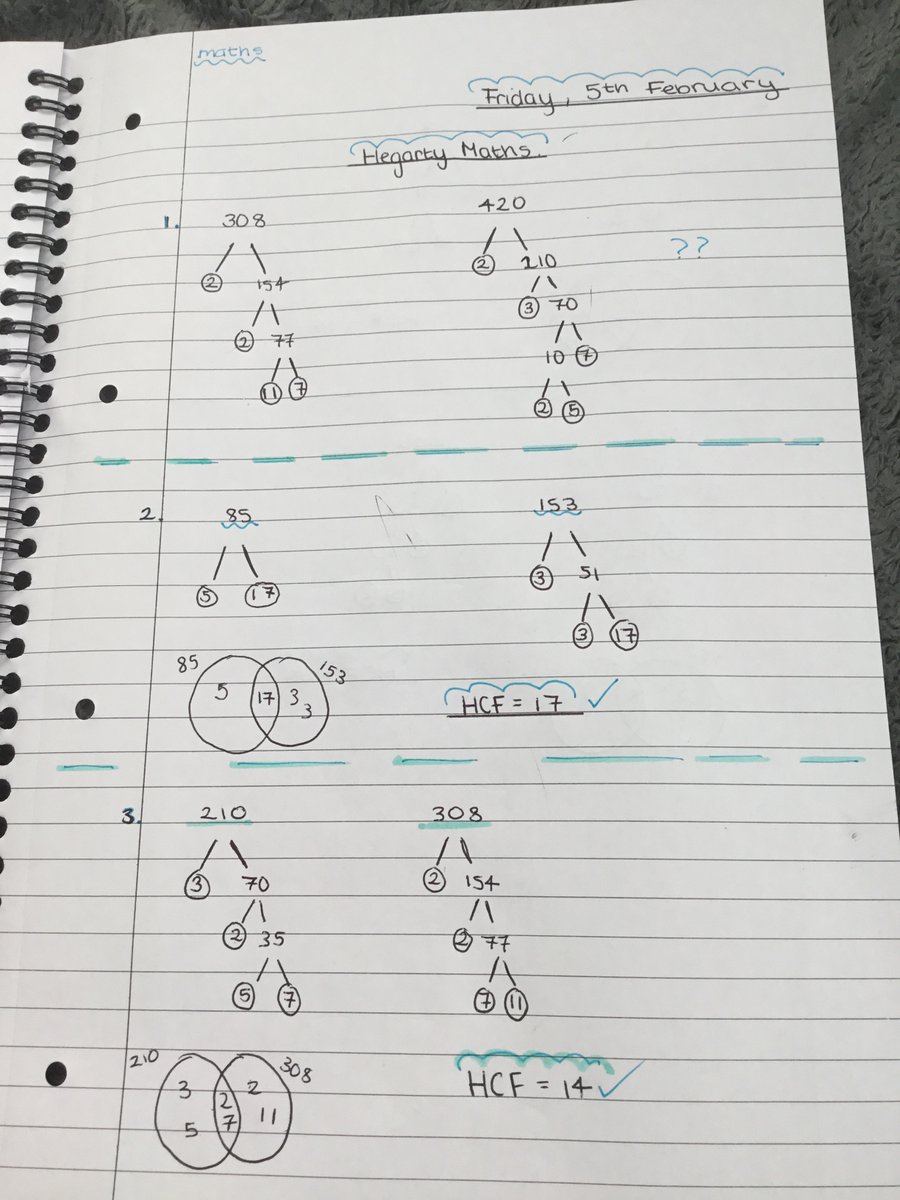 maths
Friday, 5th February
Hegarty Maths.
1. 308 420
2 154 2 210 ??
2 77 3 70
11 7 10 7
2 5
2. 85 153
5 17 3 51
3 17
85 153
5 17 3
3
HCF = 17 ✓
3. 210 308
3 70 2 154
2 35 2 77
5 7 7 11
210 308
3 2 2
5 7 11
HCF = 14 ✓